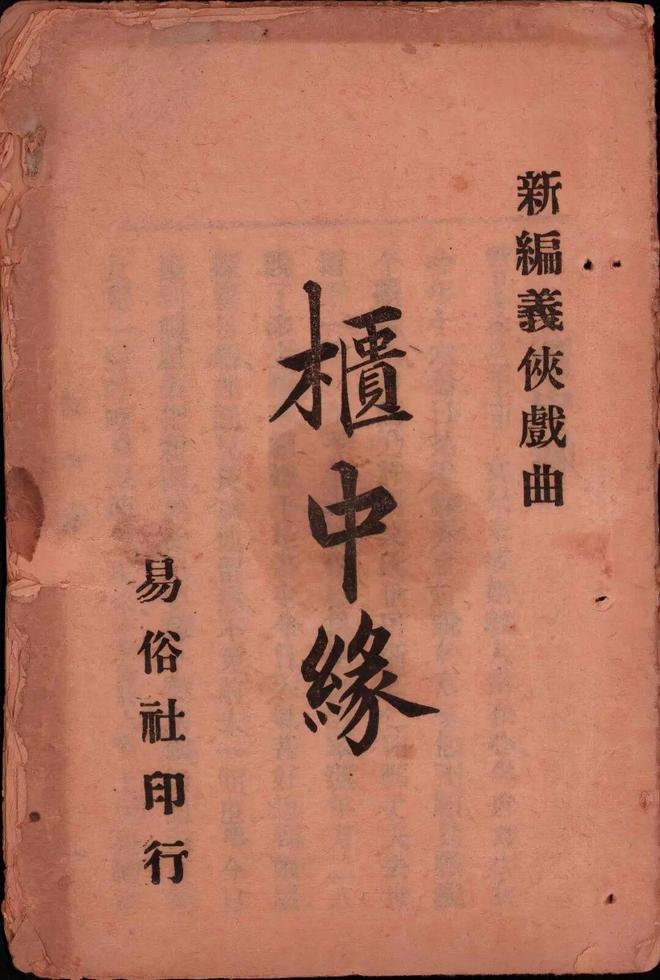 新編義俠戲曲
櫃中緣
易俗社印行